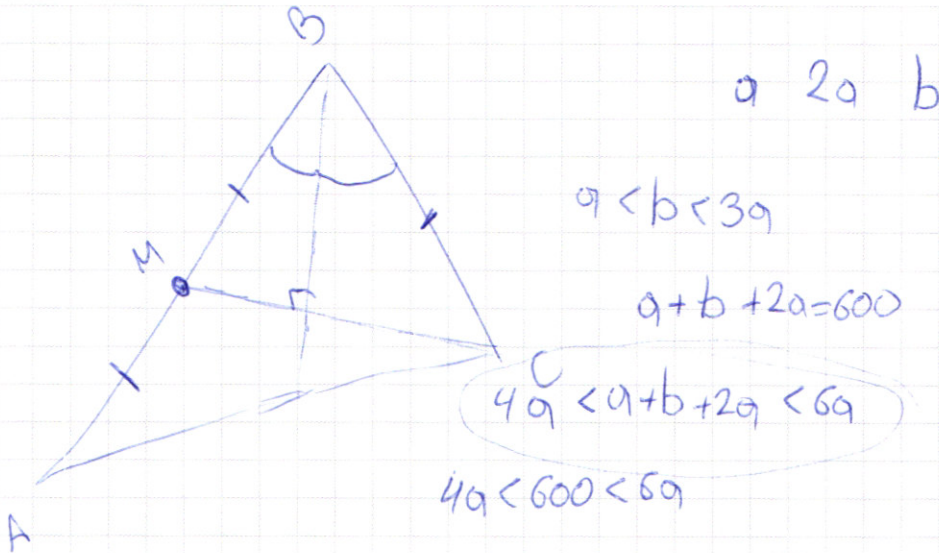 B
a 2a b
a < b < 3a
M
a + b + 2a = 600
C
4a < a + b + 2a < 6a
4a < 600 < 6a
A